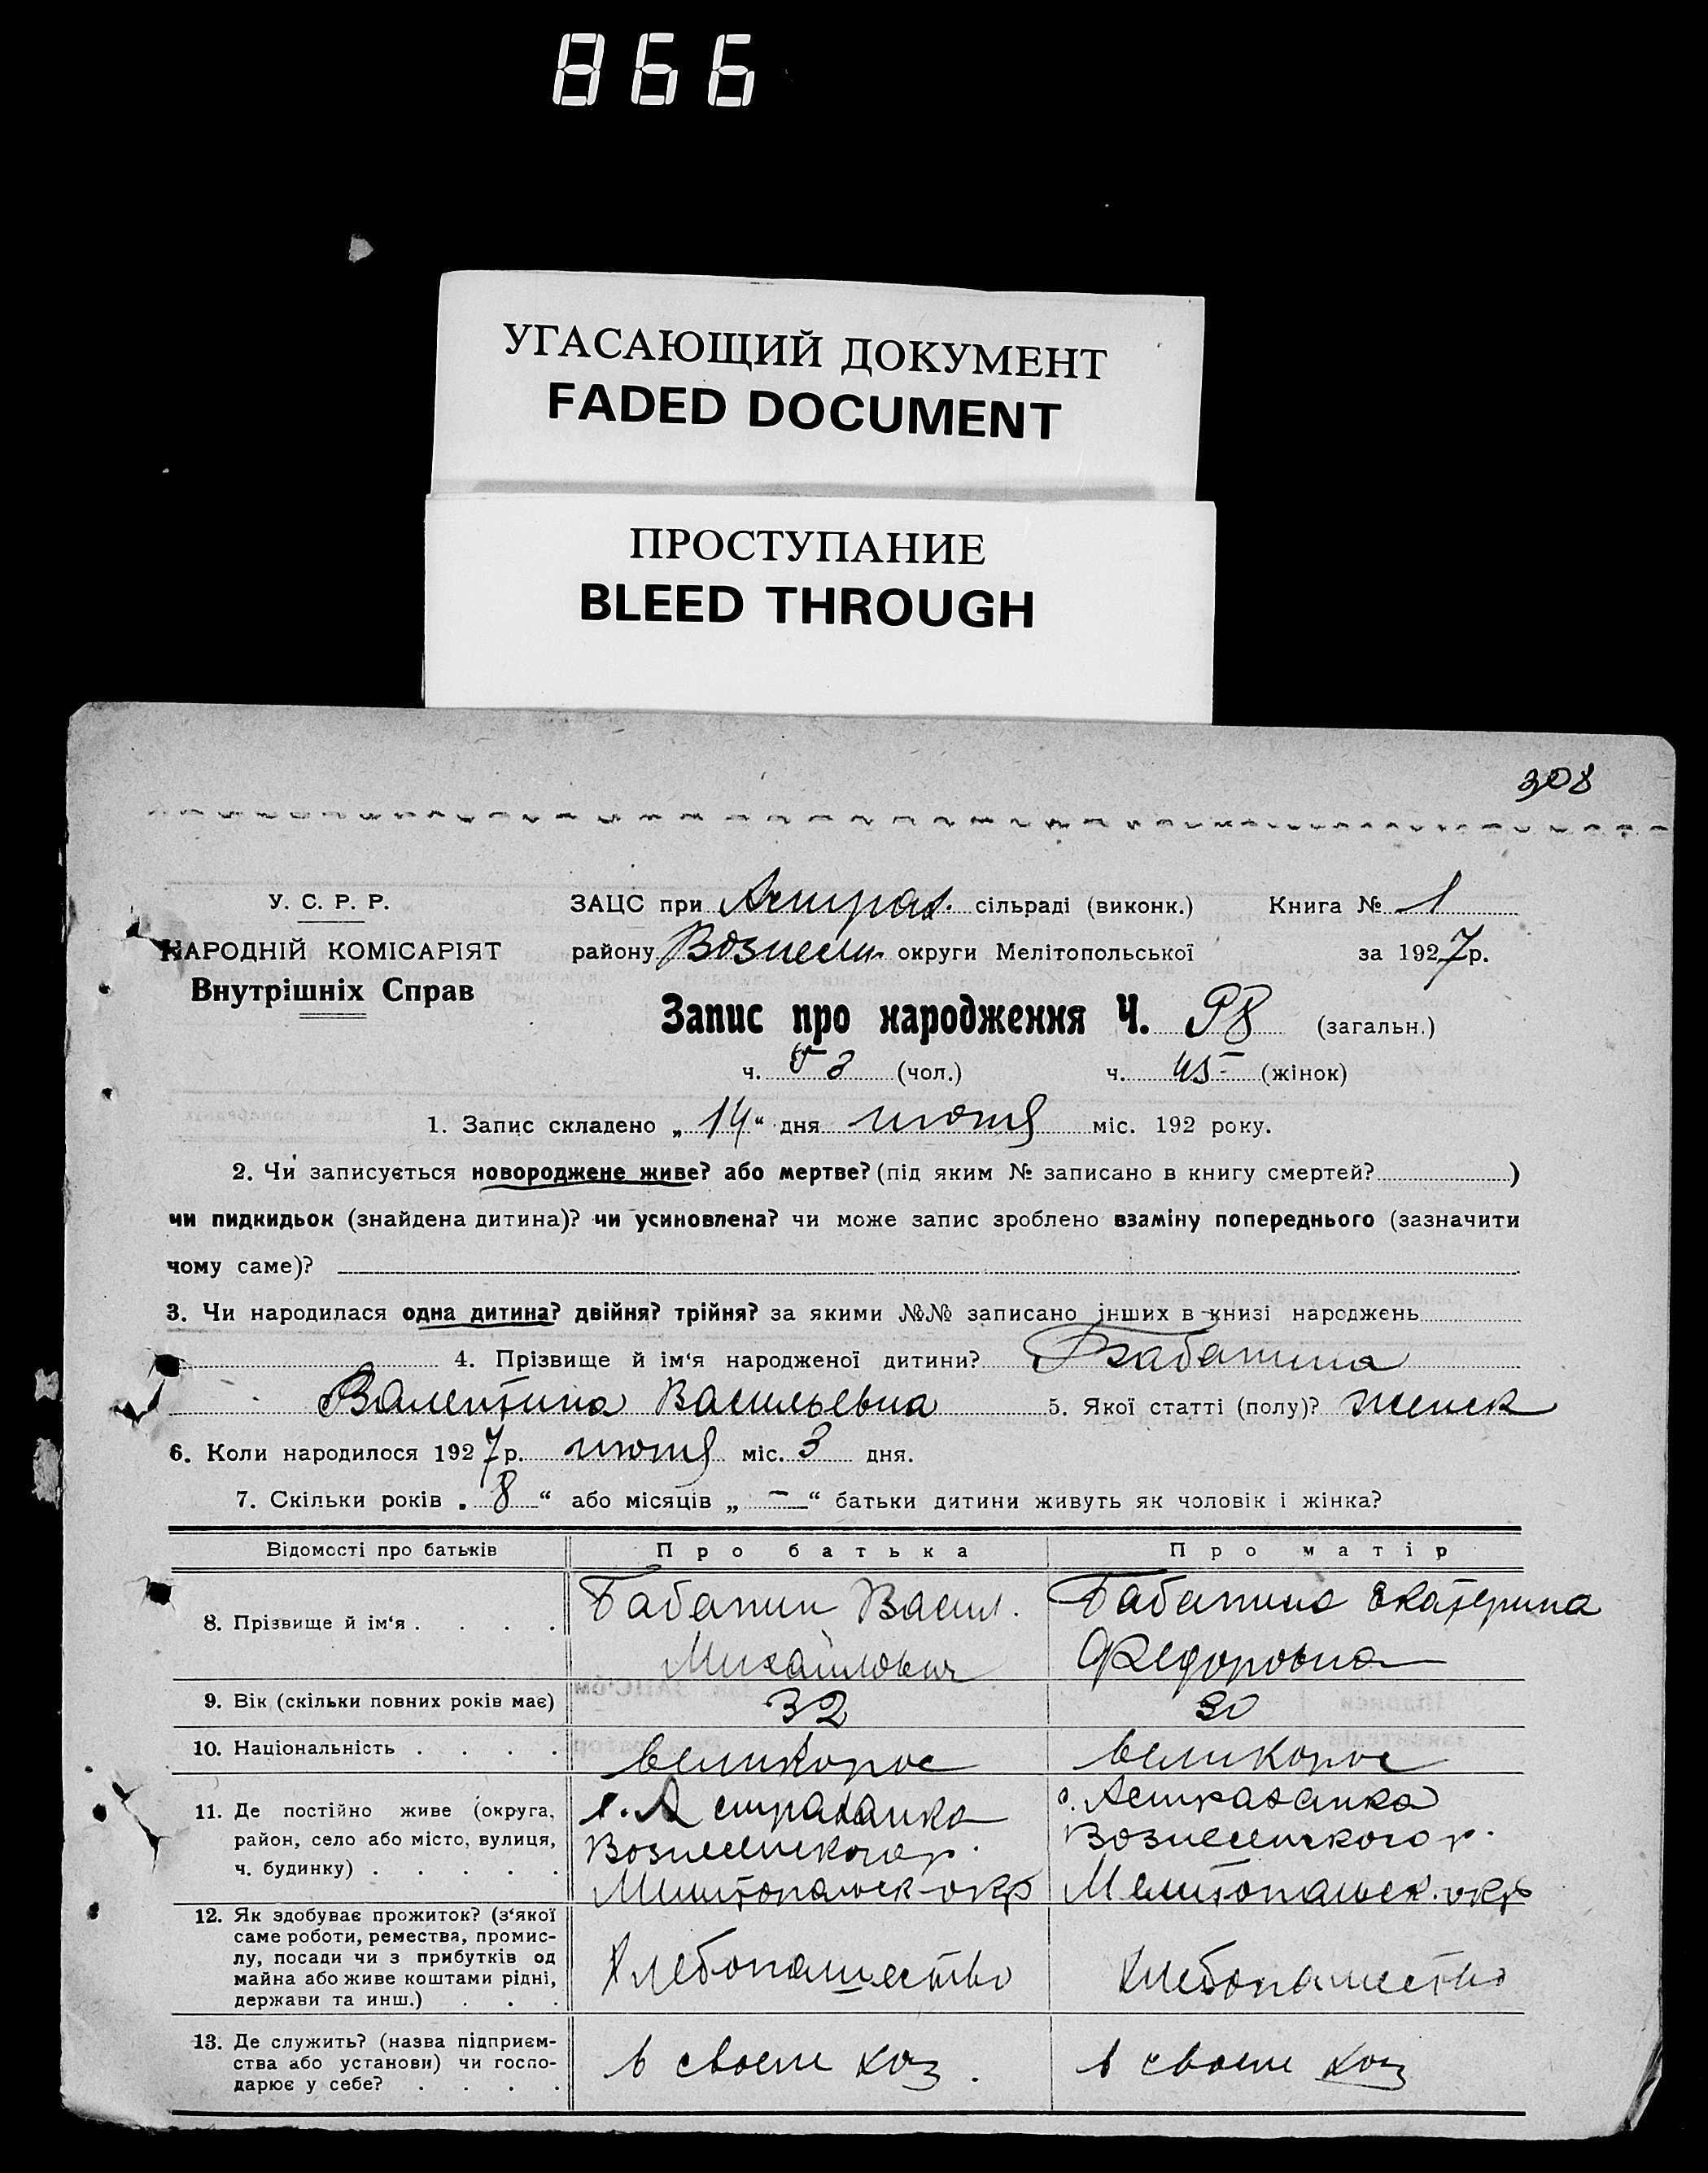 866
УГАСАЮЩИЙ ДОКУМЕНТ
FADED DOCUMENT
ПРОСТУПАНИЕ
BLEED THROUGH
308
У. С. Р. Р.
НАРОДНІЙ КОМІСАРІЯТ
Внутрішніх Справ
ЗАЦС при Астрах. сільраді (виконк.) Книга № 1
району Вознесен. округи Мелітопольської за 1927 р.
Запис про народження Ч. 98 (загальн.)
ч. 53 (чол.) ч. 45 (жінок)
1. Запис складено „14“ дня июня міс. 192 року.
2. Чи записується новороджене живе? або мертве? (під яким № записано в книгу смертей? )
чи пидкидьок (знайдена дитина)? чи усиновлена? чи може запис зроблено взаміну попереднього (зазначити
чому саме)?
3. Чи народилася одна дитина? двійня? трійня? за якими №№ записано інших в книзі народжень
4. Прізвище й ім‘я народженої дитини? Бабанина
Валентина Васильевна 5. Якої статті (полу)? женск
6. Коли народилося 1927 р. июня міс. 3 дня.
7. Скільки років „8“ або місяців „ – “ батьки дитини живуть як чоловік і жінка?
Відомості про батьків Про батька Про матір
8. Прізвище й ім‘я . . . . Бабанин Васил. Михайлович
Бабанина Екатерина Федоровна
9. Вік (скільки повних років має) 32 30
10. Національність . . . . великорос великорос
11. Де постійно живе (округа,
район, село або місто, вулиця,
ч. будинку) . . . . .
с. Астраханка
Вознесенского р.
Мелитопольск окр
с. Астраханка
Вознесенского р.
Мелитопольск. окр
12. Як здобуває прожиток? (з‘якої
саме роботи, ремества, промис-
лу, посади чи з прибутків од
майна або живе коштами рідні,
держави та инш.) . . .
Хлебопашество
Хлебопашество
13. Де служить? (назва підприєм-
ства або установи) чи госпо-
дарює у себе? . . . .
в своем хоз.
в своем хоз